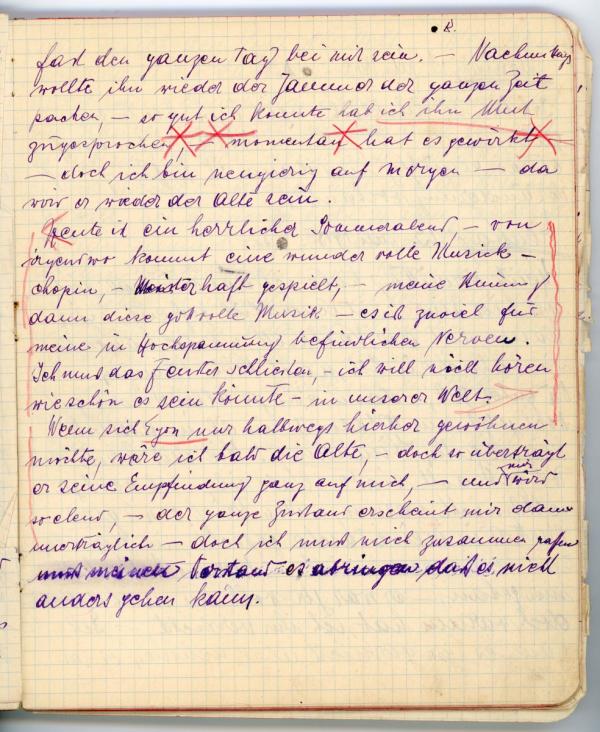 8.
fast den ganzen Tag bei mir sein. — Nachmittags
wollte ihn wieder der Jammer der ganzen Zeit
packen, — so gut ich konnte hab ich ihm Mut
zugesprochen momentan hat es gewirkt
— doch ich bin neugierig auf morgen — da
wird er wieder der Alte sein.
Heute ist ein herrlicher Sommerabend, — von
irgendwo kommt eine wunder volle Musick —
Chopin, — Meisterhaft gespielt, — meine
dann diese gotvolle Musik — es ist zuviel für
meine in Hochspannung befindlichen Nerven.
Ich muss das Fenster schliesen, — ich will nicht hören
wie schön es sein könnte — in unserer Welt.
Wenn sich Egon nur halbwegs hierher gewöhnen
möchte, wäre ich bald die Alte, — doch so überträgt
er seine Empfindung ganz auf mich, — und mir wird
so elend, — der ganze Zustand erscheint mir dann
unerträglich — doch ich muss mich zusammen raffen
und meinem Verstand es abringen daß es nicht
anders gehen kann.